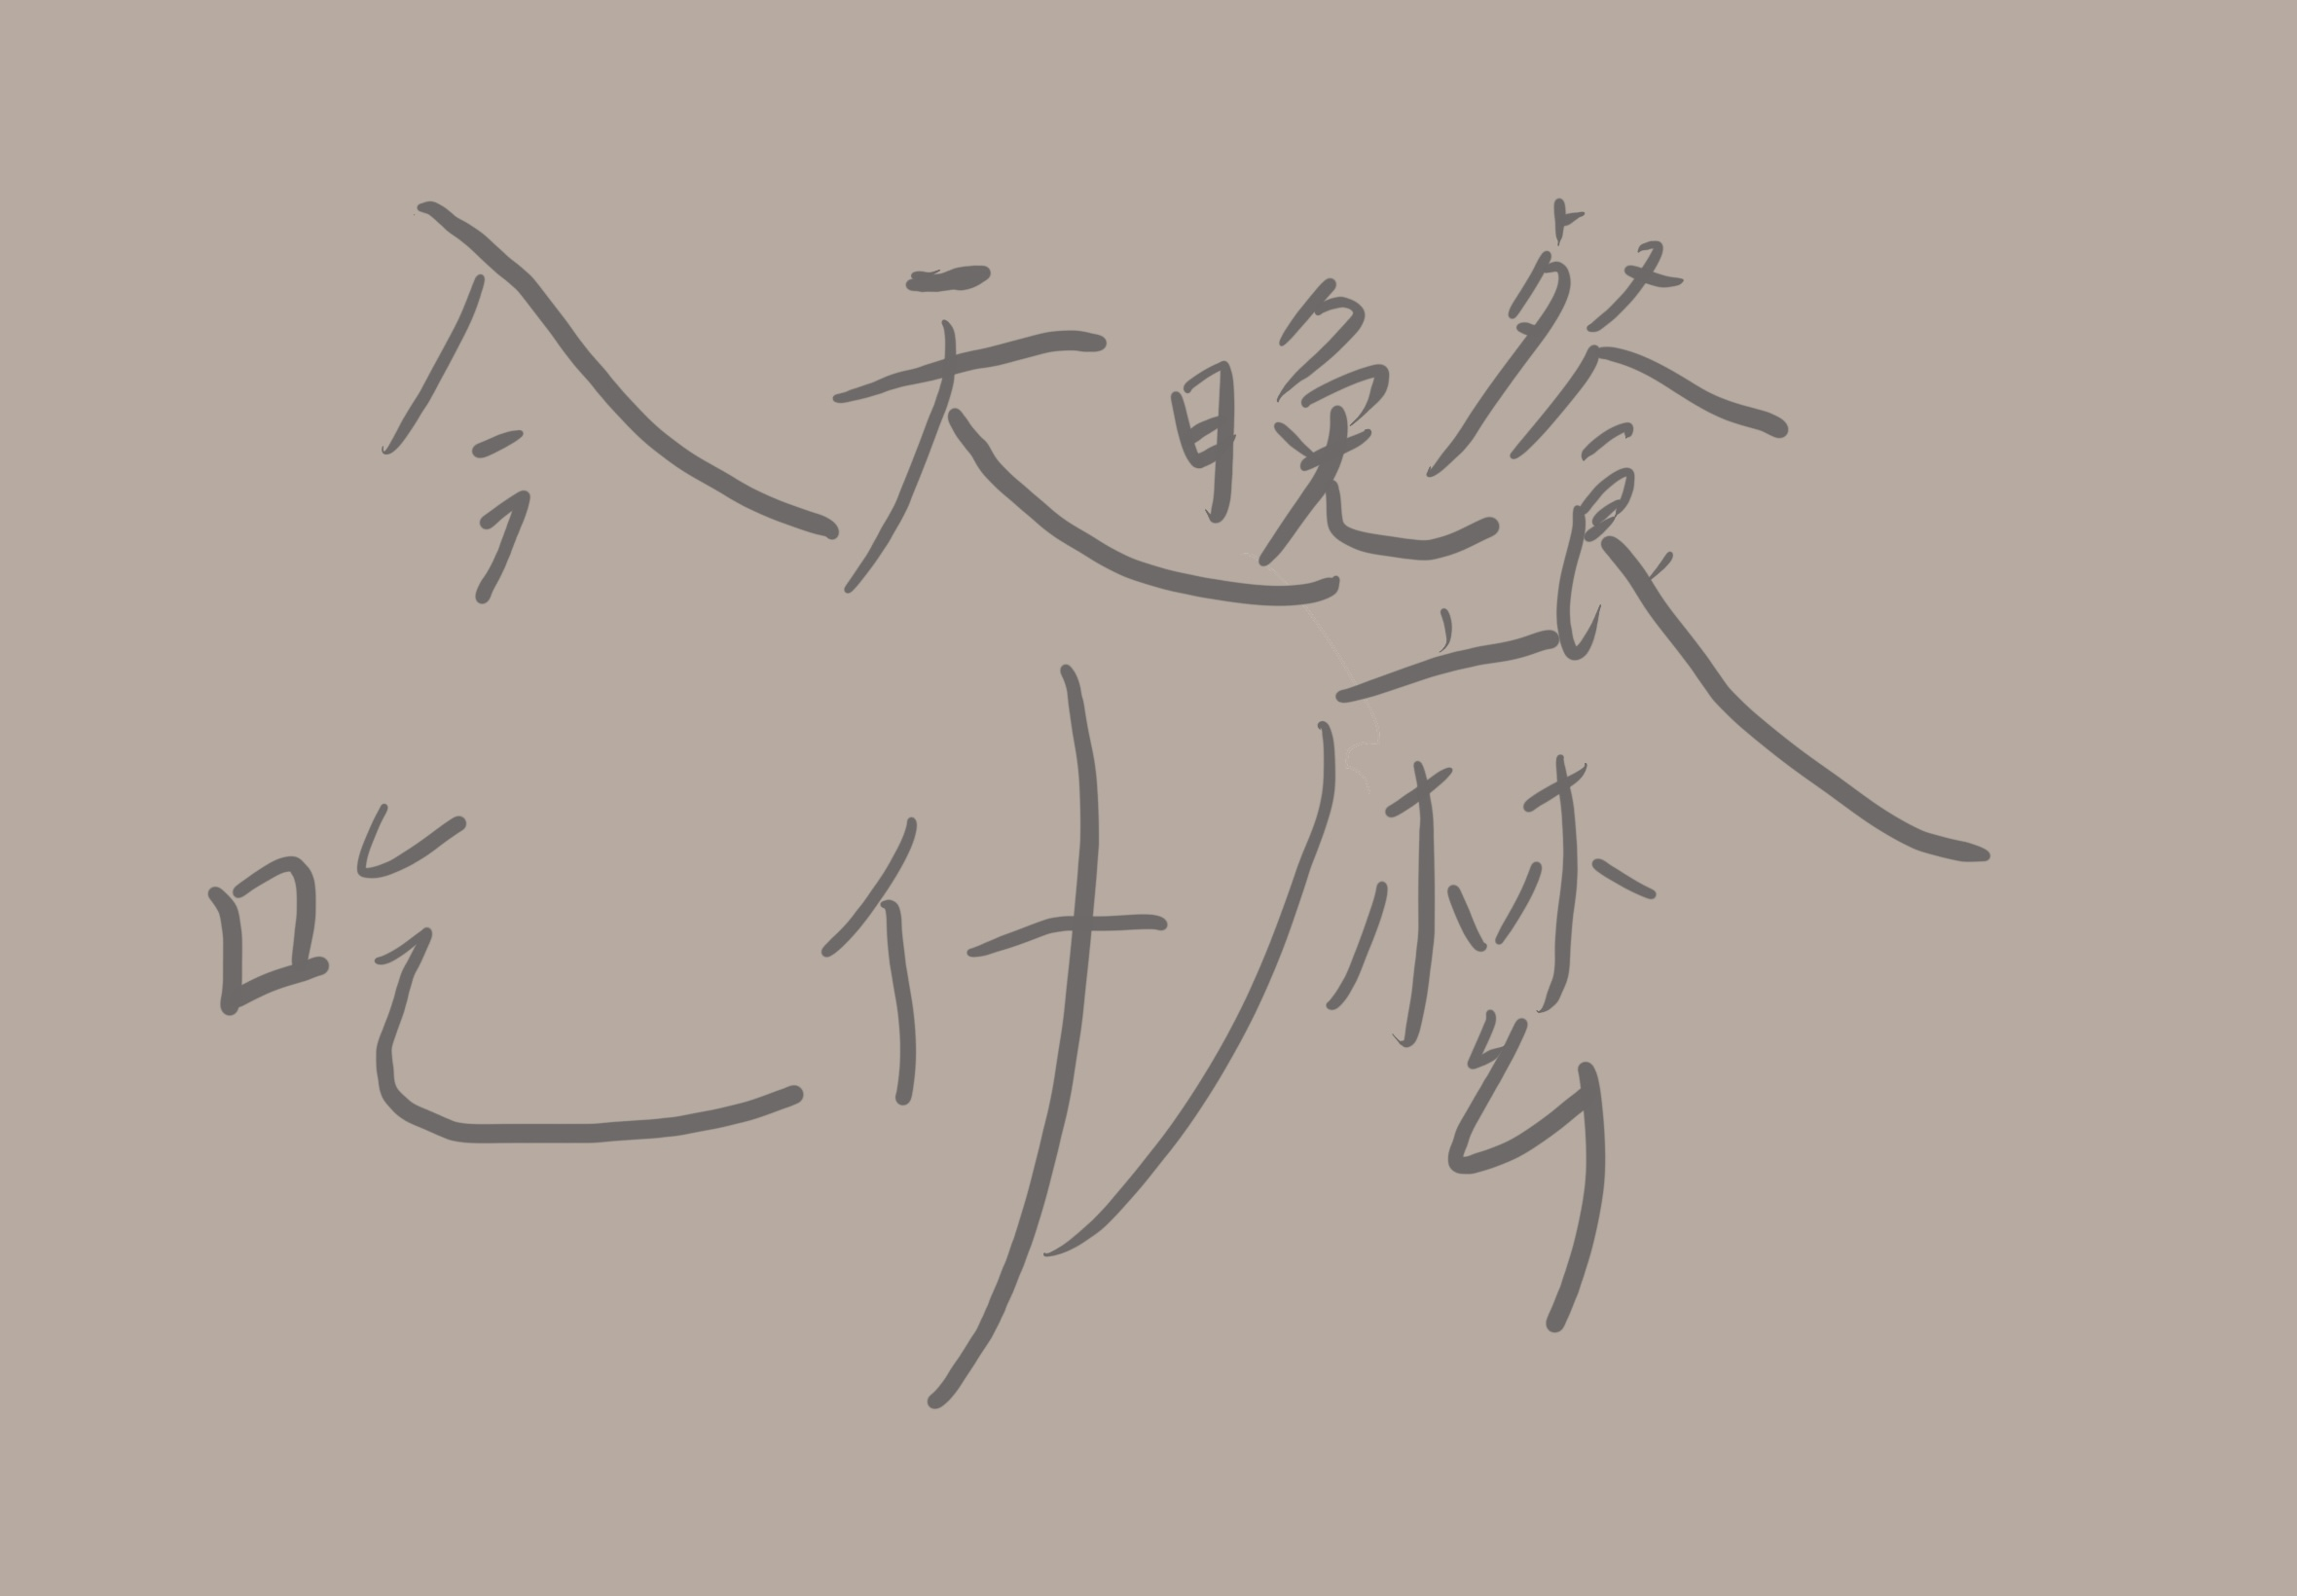 今天晚餐
吃什麼